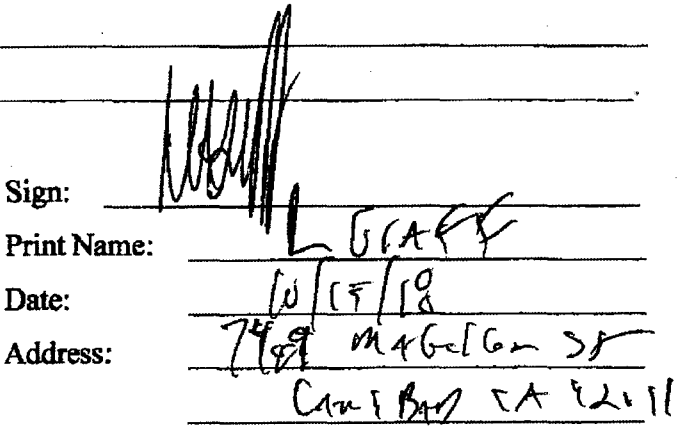 Sign:
Print Name: L GrAFF
Date:
Address: 7489 MAGellan ST
CarlsBAD CA